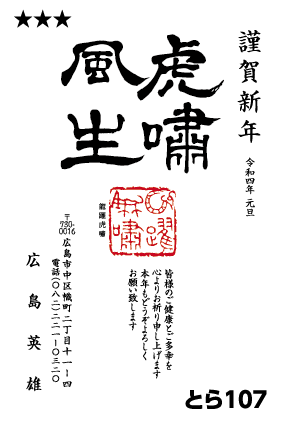 ★★★
謹賀新年
令和四年 元旦
虎嘯
風生
龍躍
虎嘯
龍躍虎嘯
皆様のご健康とご多幸を
心よりお祈り申し上げます
本年もどうぞよろしく
お願い致します
〒730-0016 広島市中区幟町二丁目十一ー四
電話(〇八二)二二一ー〇三二〇
広島英雄
とら107